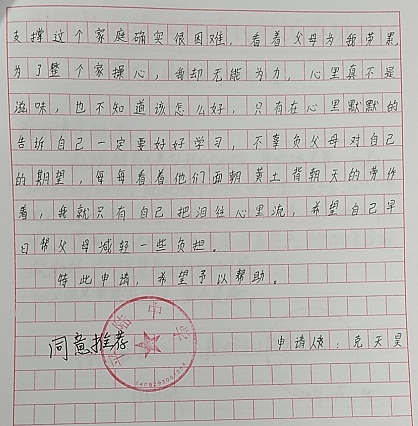 支撑这个家庭确实很困难，看着父母为我劳累
为了整个家操心，我却无能为力，心里真不是
滋味，也不知道该怎么好，只有在心里默默的
告诉自己一定要好好学习，不辜负父母对自己
的期望，每每看着他们面朝黄土背朝天的劳作
着，我就只有自己把泪往心里流，希望自己早
日帮父母减轻一些负担。
特此申请，希望予以帮助。
中学
同意推荐
申请人：克天昊